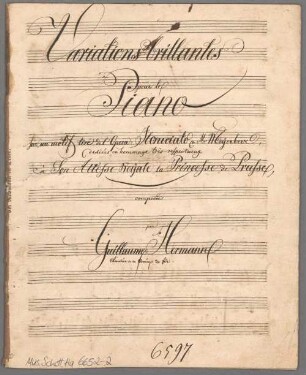 Variations brillantes
pour le
Piano
sur un motif tiré de l'Opera de Meyerbeer,
dediées en hommage très respectueux
à Son Altesse Royale la Princesse de Prusse,
composées
par
Guillaume Hermann
6597
Mus.Schott.Ha 6652-2